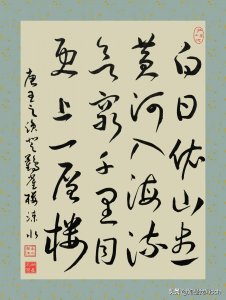 白日依山尽
黄河入海流
欲窮千里目
更上一层樓
唐王之渙登鸛雀樓